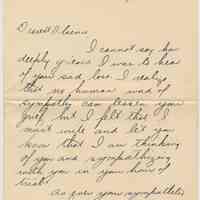 Dearest
I cannot say how
deeply grieved I was to hear
of your sad loss. I realize
that no human word of
sympathy can lessen your
grief but I felt that I
must write and let you
know that I am thinking
of you and sympathizing
with you in your hour of
trial.
As ever your sympathetic